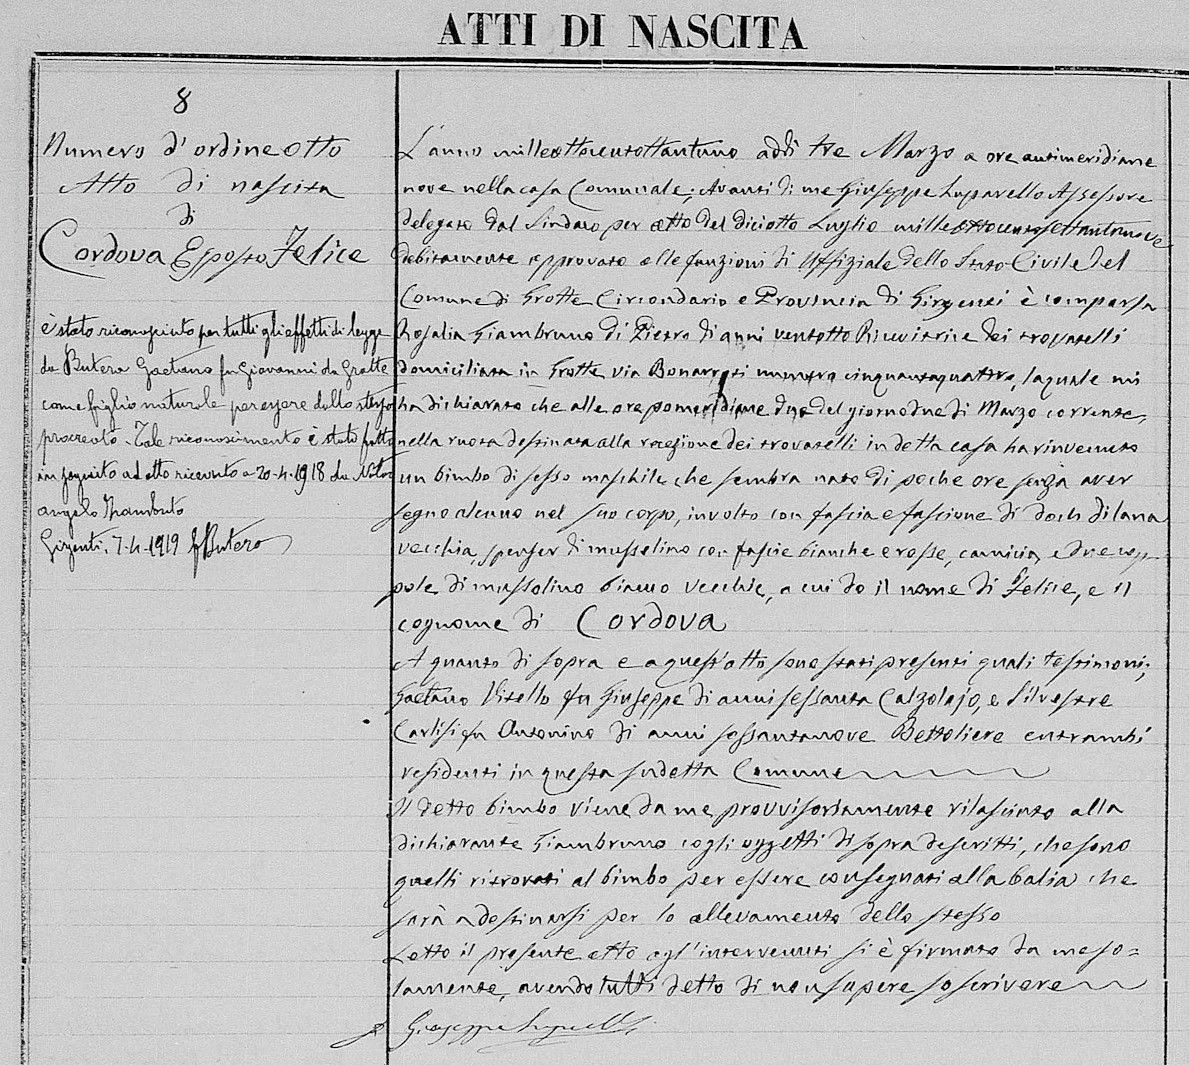 ATTI DI NASCITA
8
Numero d'ordine otto
Atto di nascita
di
Cordova Esposto Felice
è stato riconosciuto per tutti gli effetti di legge
da Butera Gaetano fu Giovanni da Grotte
come figlio naturale per essere dallo stesso
procreato. Tale riconoscimento è stato fatto
in seguito ad atto ricevuto a 20-4-1918 da Notar
Angelo
Girgenti, 7-4-1919 Butera
L'anno milleottocentottantuno addì tre Marzo a ore antimeridiane
nove nella casa Comunale; Avanti di me Giuseppe Luparello Assessore
delegato dal Sindaco per atto del diciotto Luglio milleottocentosettantanove
debitamente approvato alle funzioni di Uffiziale dello Stato Civile del
Comune di Grotte Circondario e Provincia di Girgenti è comparsa
Rosalia Giambruno di Pietro di anni ventotto Ricevitrice dei trovatelli
domiciliata in Grotte via Bonarroti numero cinquantaquattro, la quale mi
ha dichiarato che alle ore pomeridiane due del giorno due di Marzo corrente,
nella ruota destinata alla recezione dei trovatelli in detta casa ha rinvenuto
un bimbo di sesso maschile che sembra nato di poche ore senza aver
segno alcuno nel suo corpo, involto con fascia e fascione di di lana
vecchia, spenser di mussolino con fascie bianche e rosse, camicia, e due cop-
pole di mussolino bianco vecchie, a cui do il nome di Felice, e il
cognome di Cordova
A quanto di sopra e a quest'atto sono stati presenti quali testimoni;
Gaetano Vitello fu Giuseppe di anni sessanta Calzolajo, e Silvestre
Carlisi fu Antonino di anni sessantanove Bettoliere entrambi
residenti in questa sudetta Comune
Il detto bimbo viene da me provvisoriamente rilasciato alla
dichiarante Giambruno cogli oggetti di sopra descritti, che sono
quelli ritrovati al bimbo per essere consegnati alla balia che
sarà a destinarsi per lo allevamento dello stesso
Letto il presente atto agl'intervenuti si è firmato da me so=
lamente, avendo tutti detto di non sapere soscrivere
Giuseppe Luparello